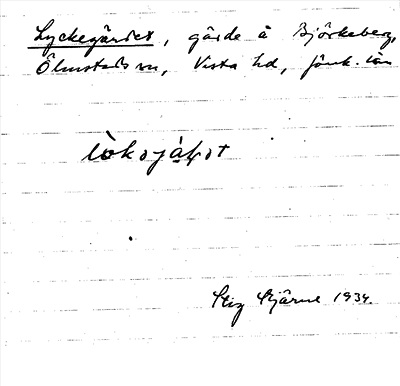 Lyckegärdet, gärde å Björkeberg,
Ölmstads sn, Vista hd, Jönk. län
Stig Bjärne 1934.